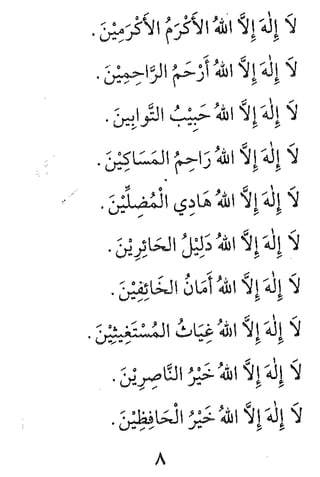 لَا إِلٰهَ إِلاَّ اللهُ الأَكْرَمُ الأَكْرَمِيْنَ.
لَا إِلٰهَ إِلاَّ اللهُ أَرْحَمُ الرَّاحِمِيْنَ.
لَا إِلٰهَ إِلاَّ اللهُ حَبِيْبُ التَّوابِينَ.
لَا إِلٰهَ إِلاَّ اللهُ رَاحِمُ المَسَاكِيْنَ.
لَا إِلٰهَ إِلاَّ اللهُ هَادِي الْمُضِلِّيْنَ.
لَا إِلٰهَ إِلاَّ اللهُ دَلِيْلُ الحَائِرِيْنَ.
لَا إِلٰهَ إِلاَّ اللهُ أَمَانُ الخَائِفِيْنَ.
لَا إِلٰهَ إِلاَّ اللهُ غِيَاثُ المُسْتَغِيثِيْنَ.
لَا إِلٰهَ إِلاَّ اللهُ خَيْرُ النَّاصِرِيْنَ.
لَا إِلٰهَ إِلاَّ اللهُ خَيْرُ الْحَافِظِيْنَ.
٨